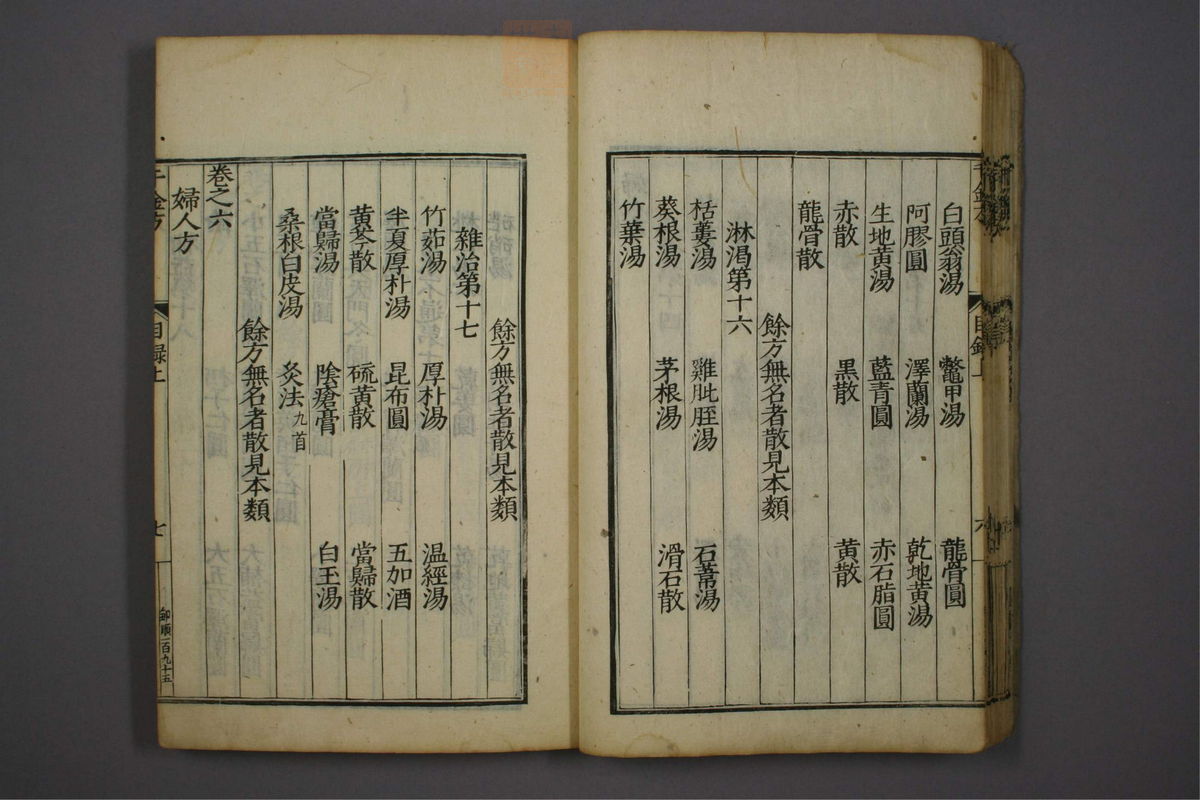 白頭翁湯　鼈甲湯　龍骨圓
阿膠圓　澤蘭湯　乾地黄湯
生地黄湯　藍青圓　赤石脂圓
赤散　黒散　黄散
龍骨散
餘方無名者散見本類
淋渇第十六
栝蔞湯　雞肶胵湯　石葦湯
葵根湯　茅根湯　滑石散
竹葉湯
餘方無名者散見本類
雜治第十七
竹茹湯　厚朴湯　温經湯
半夏厚朴湯　昆布圓　五加酒
黄芩散　硫黄散　當歸散
當歸湯　陰瘡膏　白玉湯
桑根白皮湯　灸法九首
餘方無名者散見本類
卷之六
婦人方
千金方　目録上　七